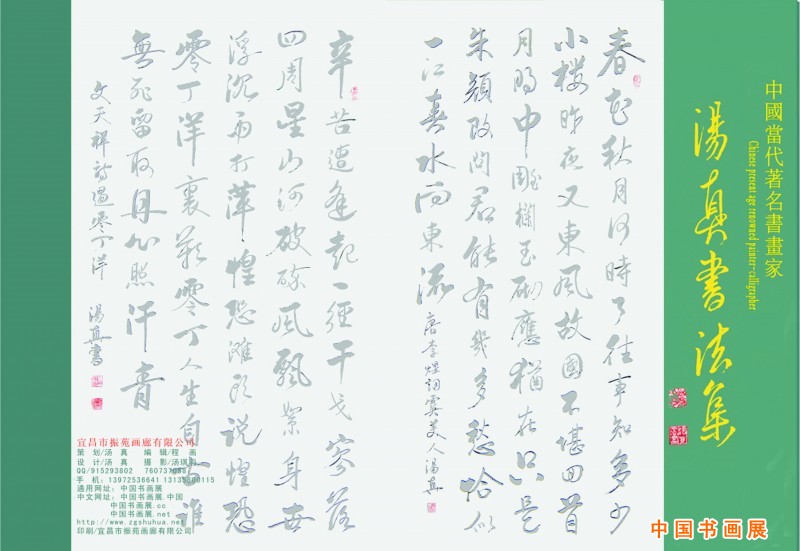 中國當代著名書畫家
Chinese present age renowned painter-calligrapher
湯真書法集
春花秋月何時了往事知多少
小楼昨夜又東風故國不堪回首
月明中雕欄玉砌應猶在只是
朱顏改問君能有幾多愁恰似
一江春水向東流
唐李煜詞虞美人湯真
辛苦遭逢起一經干戈寥落
四周星山河破碎風飄絮身世
浮沉雨打萍惶恐灘頭說惶恐
零丁洋裏歎零丁人生自古誰
無死留取丹心照汗青
文天祥詩過零丁洋
湯真書
宜昌市振苑画廊有限公司
策 划/汤 真 编 辑/程 画
设 计/汤 真 摄 影/汤琪
QQ/915293802
手 机: 13972536641
通用网址: 中国书画展
中文网址: 中国书画展.中国
中国书画展.cc
中国书画展.net
http://www.zgshuhua.net
印刷/宜昌市振苑画廊有限公司
中国书画展